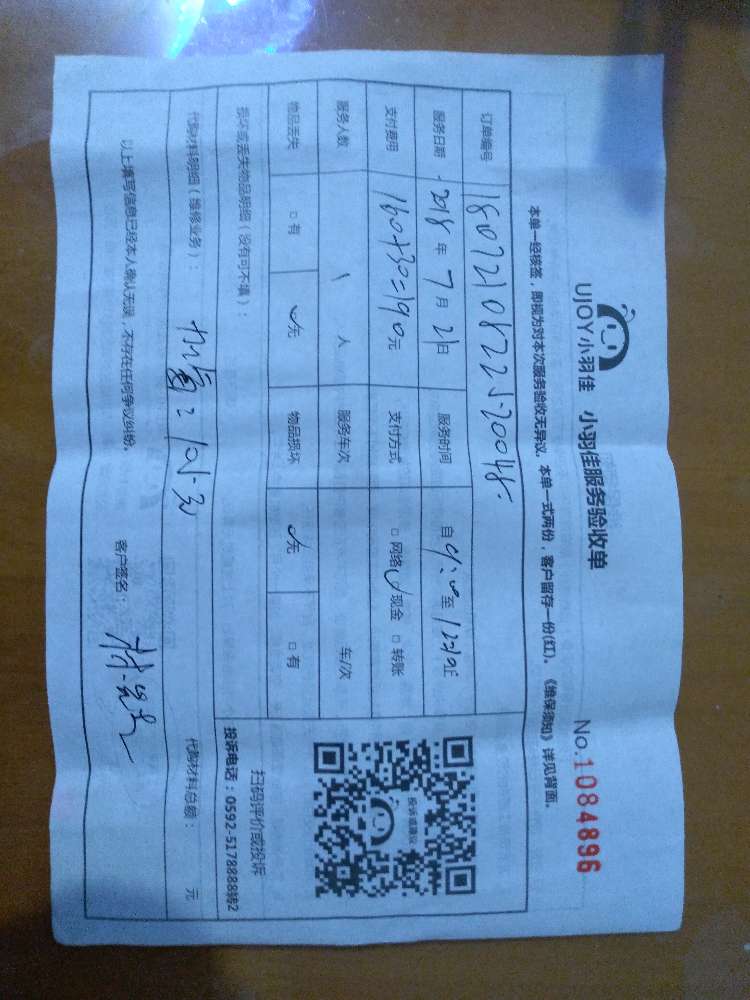 UJOY小羽佳 小羽佳服务验收单 No.1084896
本单一经核签，即视为对本次服务验收无异议。本单一式两份，客户留存一份(红)。《维保须知》详见背面。
订单编号
服务日期 2018年7月21日 服务时间 自 至 止
支付费用 160+30=190元 支付方式 □网络 ✓现金 □转账
服务人数 1人 服务车次 车/次
物品丢失 □有 ✓无 物品损坏 ✓无 □有
损坏或丢失物品明细（没有可不填）：
代购材料明细（维修业务）： 代购材料总额： 元
以上填写信息已经本人确认无误，不存在任何争议纠纷。 客户签名：
投诉或建议
扫码评价或投诉
投诉电话：0592-5178888转2